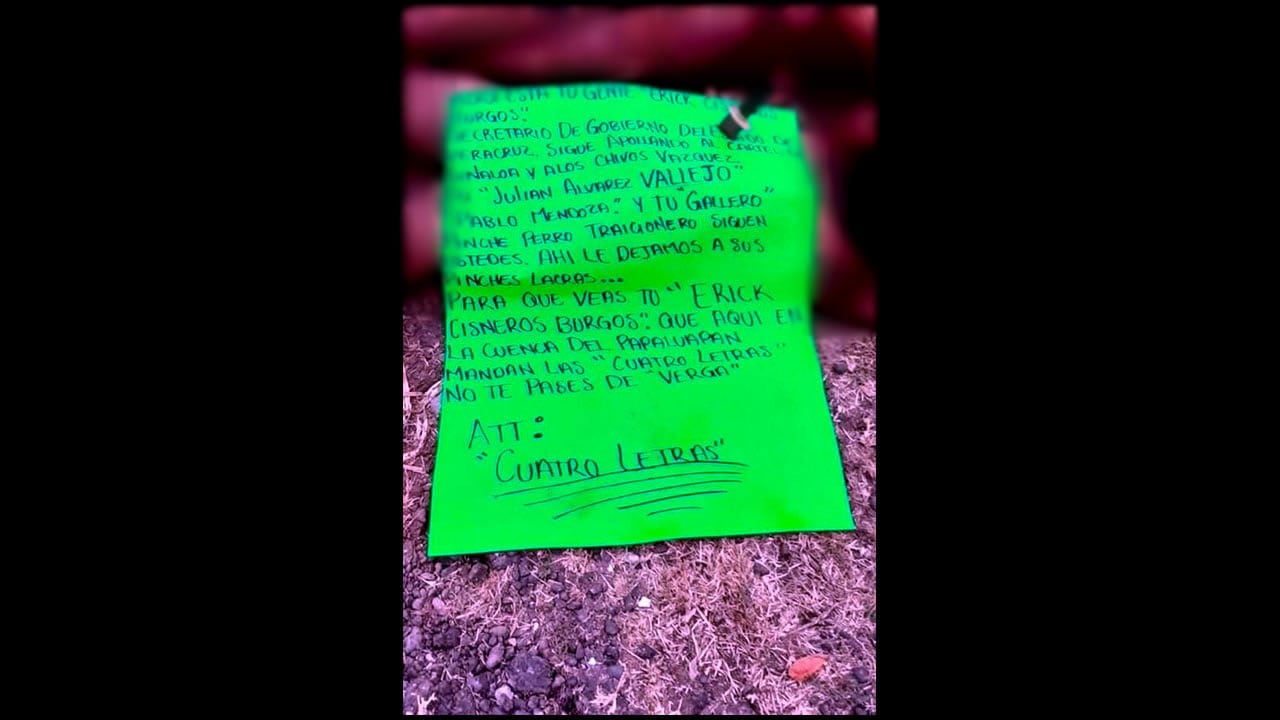 ESTA TU GENTE "ERICK
BURGOS".
SECRETARIO DE GOBIERNO DELEGADO DE
VERACRUZ. SIGUE APOLLANDO AL CARTEL
SINALOA Y ALOS CHIVOS VAZQUEZ.
"JULIAN ALVAREZ VALLEJO"
"PABLO MENDOZA." Y TU "GALLERO"
PINCHE PERRO TRAICIONERO SIGUEN
USTEDES. AHI LE DEJAMOS A SUS
PINCHES LACRAS...
PARA QUE VEAS TU "ERICK
CISNEROS BURGOS". QUE AQUI EN
LA CUENCA DEL PAPALUAPAN
MANDAN LAS "CUATRO LETRAS"
NO TE PASES DE "VERGA"
ATT:
"CUATRO LETRAS"